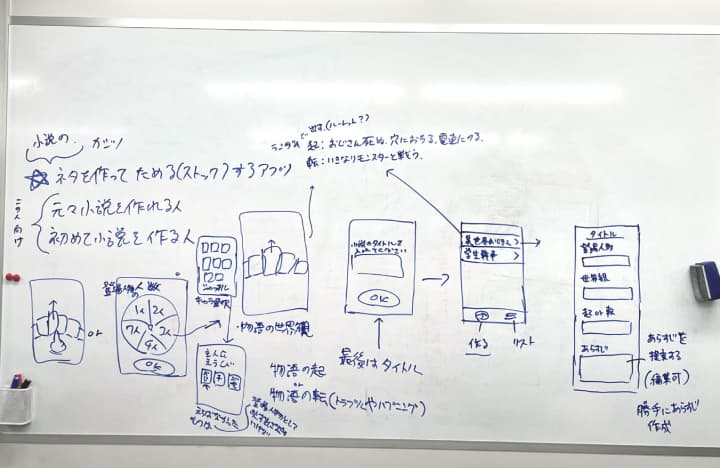 小説の
ガジツ
ネタを作ってためる(ストック)するアプリ
この人向け
元々小説を作れる人
初めて小説を作る人
ランダムで出す。(ルーレット?)
起:おじさん死ぬ、穴におちる、電車にのる。
転:いきなりモンスターと戦う。
or
登場人物の数
1人
2人
3人
7人
OK
キャラ登録
・物語の世界観
物語の起
or
物語の転(トラブルやハプニング)
小説のタイトルを
入れてください
OK
最後はタイトル
学生戦争 >
作る
リスト
タイトル
登場人物
世界観
起or転
あらすじ
あらすじを
提案する
(編集可)
勝手にあらすじ
作成